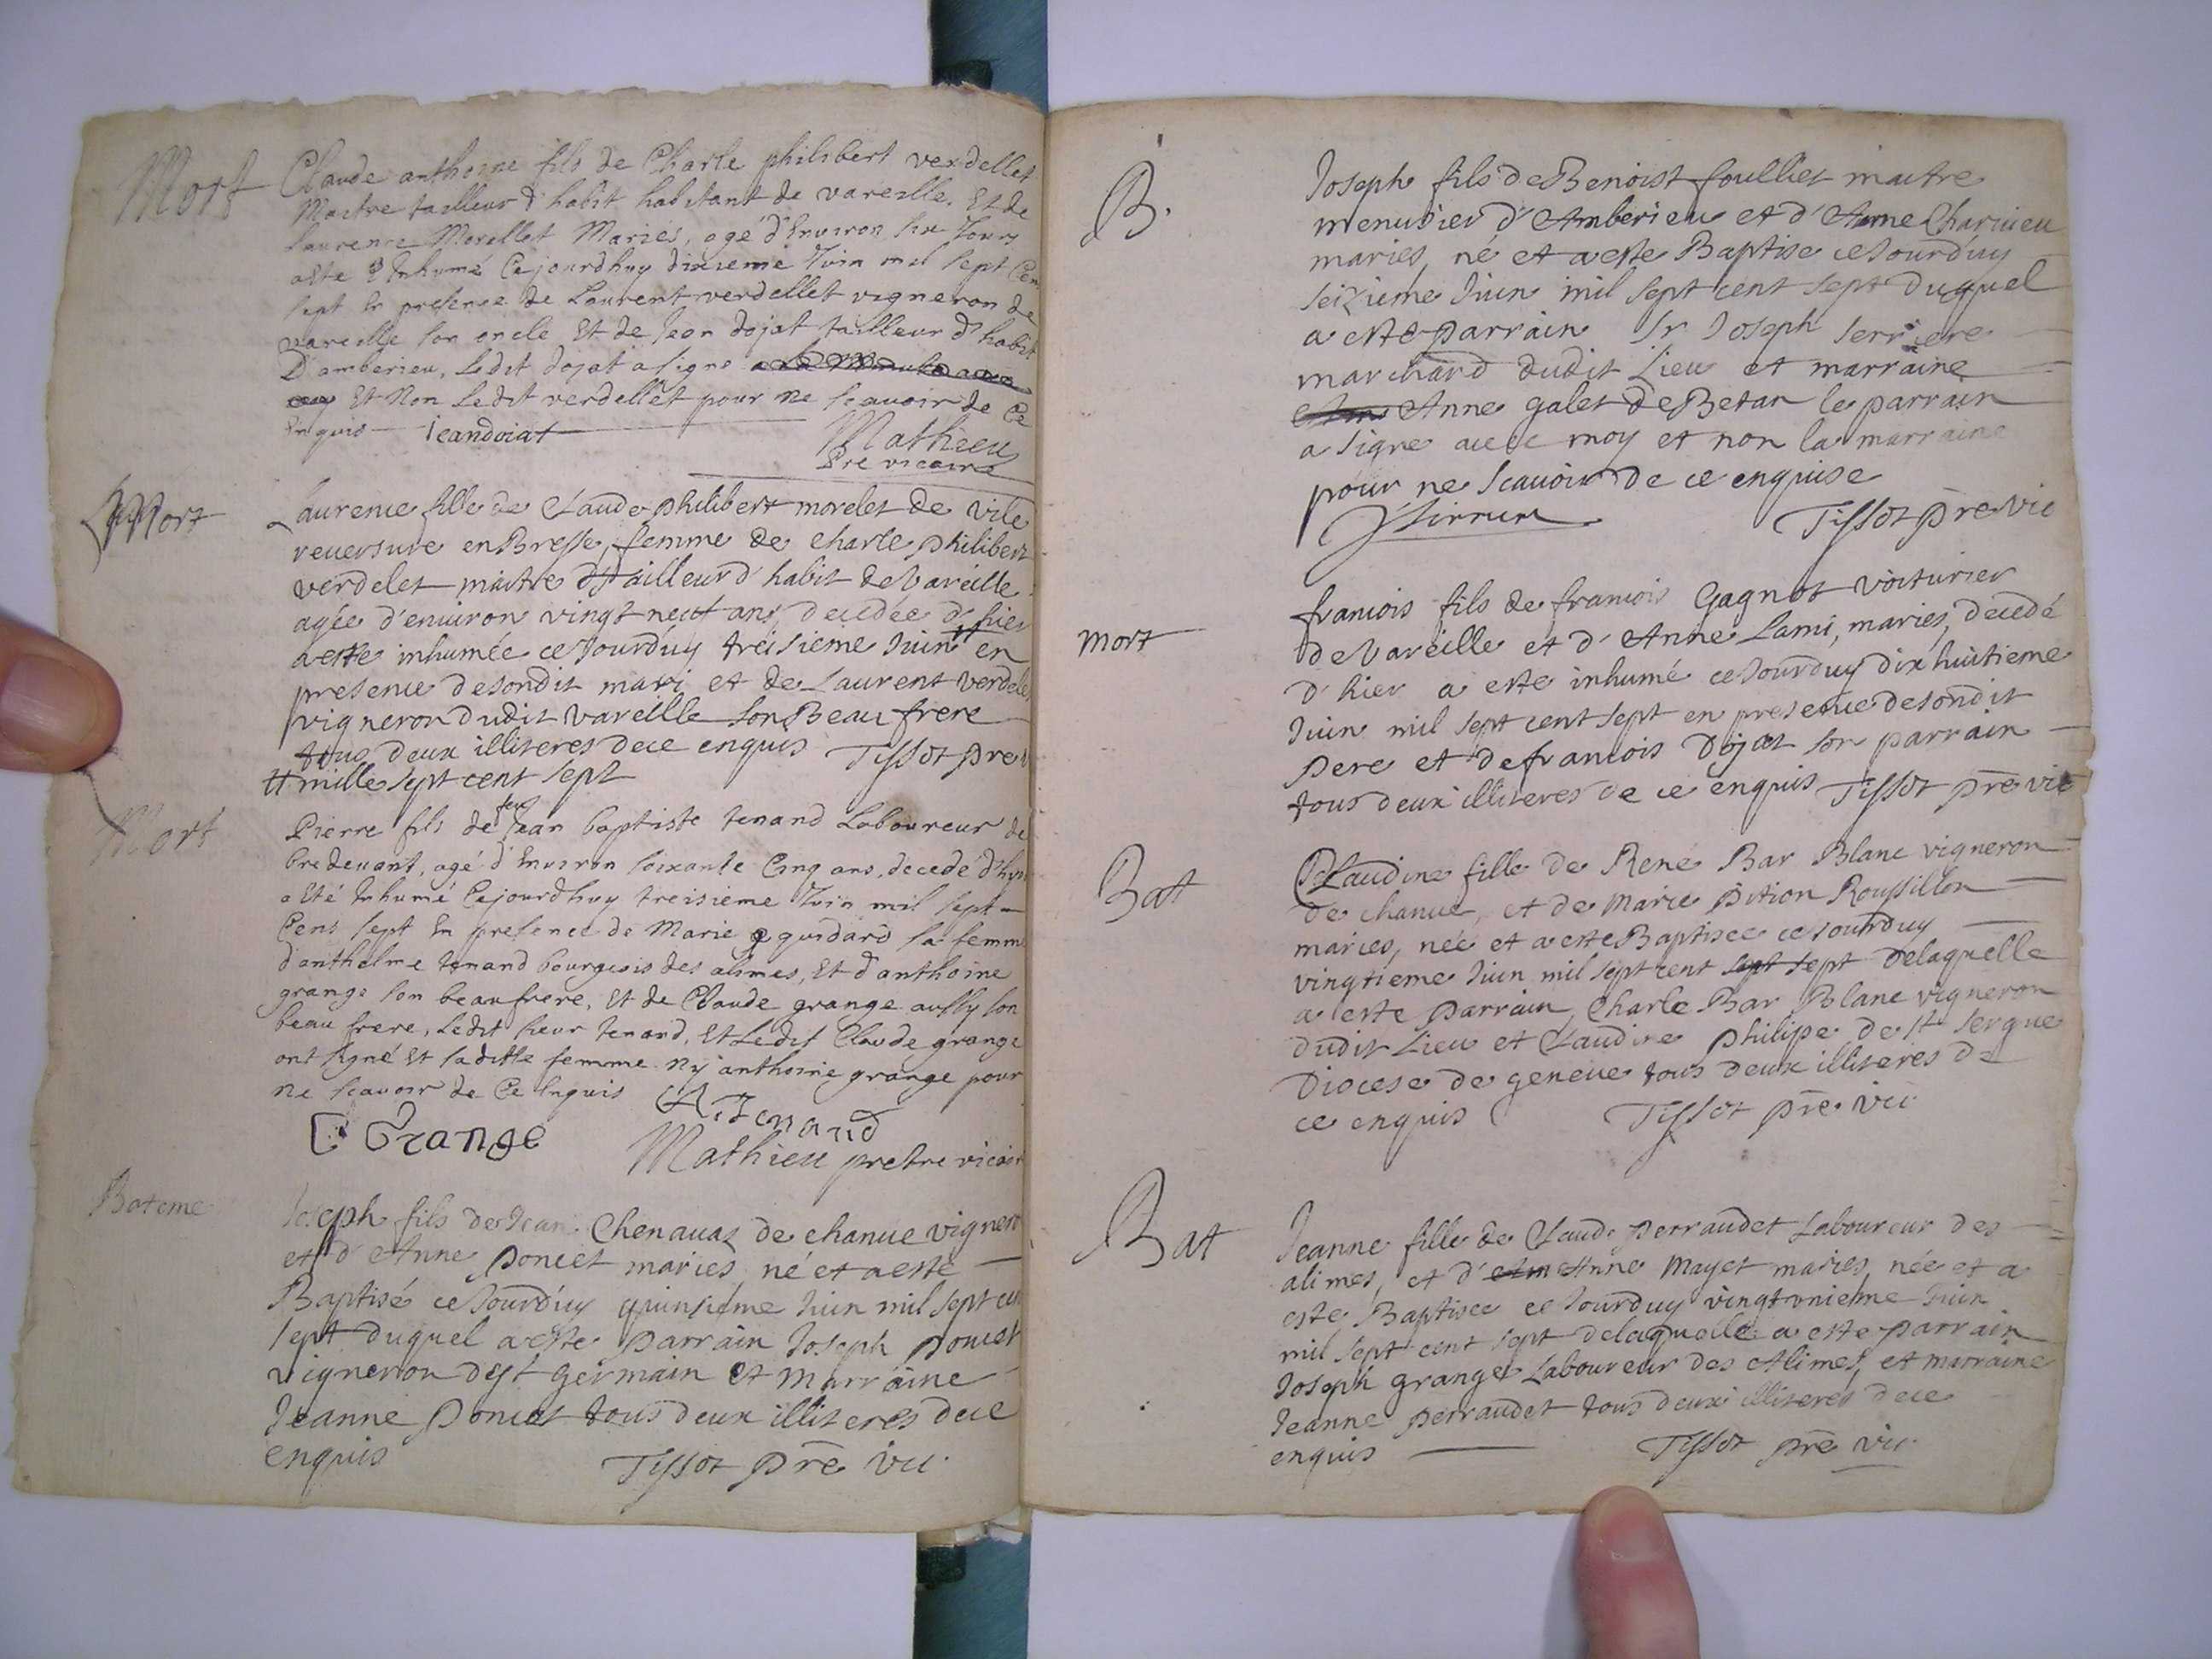 Mort
Claude anthoine fils de Charle philibert verdellet
Maitre tailleur d'habit habitant de vareille. Et de
laurence Morellet Mariés, agé d'Environ six Jours
a esté Inhumé Cejourdhuy dixieme Juin mil sept Cen
sept En presence de Laurent verdellet vigneron de
vareille son oncle Et de Jean dojat tailleur d'habit
D'amberieu, Ledit dojat a signé
Et Non Ledit verdellet pour ne scauoir de Ce
Enquis Jeandoiat
Mathieu
Pre vicaire
Mort
Laurence fille de Claude philibert morelet de vile
reuersure en Bresse, femme de charle philibert
verdelet maitre tailleur d'habit de Vareille
agée d'enuiron vingt neuf ans, decedée d'hier
a esté inhumée ce Jourd'uy treisieme Juin # en
presence de sondit mari et de Laurent Verdele
vigneron dudit Vareille son Beau frere
tous deux illiteres de ce enquis Tissot pre v
# mille sept cent sept
Mort
Pierre fils de feu Jean baptiste tenand Laboureur de
bredeuant, agé d'Enuiron soixante Cinq ans, decedé d'hyer
a Eté Inhumé Cejourdhuy treisieme Juin mil sept
Cens sept En presence de Marie guidard sa femme
d'anthelme tenand bourgeois des alimes, Et d'anthoine
grange son beaufrere, Et de Claude grange aussy son
beau frere, Ledit sieur tenand, Et Ledit Claude grange
ont signé Et saditte femme ny anthoine grange pour
ne scauoir de Ce Enquis
A. Tenand
C Grange
Mathieu pretre vicair
Bateme
Joseph fils de Jean Chenauaz de chanue vignero
et d'Anne poncet maries né et a esté
Baptisé ce Jourd'uy quinsieme Juin mil sept cen
sept duquel a esté parrain Joseph poncet
vigneron de st germain et marraine
Jeanne poncet tous deux illiteres de ce
enquis Tissot pre vic.
B.
Joseph fils de Benoist foulliet maitre
menusier d'Amberieu et d'Anne Charuieu
maries, né et a esté Baptise ce Jourd'uy
seizieme Juin mil sept cent sept duquel
a esté parrain Sr Joseph serriere
marchard dudit Lieu et marraine
Anne galet de Betan le parrain
a signe auec moy et non la marraine
pour ne scauoir de ce enquise
Tissot pre vic
mort
francois fils de francois Gagnot voiturier
de Vareille et d'Anne Lami, maries, decedé
d'hier a esté inhumé ce Jourduy dix huitieme
Juin mil sept cent sept en presence de sondit
pere et de francois Dojat son parrain
tous deux illiteres de ce enquis Tissot pre vic
Bat
Claudine fille de René Bar Blanc vigneron
de chanue, et de Marie pition Roussillon
maries, née et a esté Baptisee ce Jourduy
vingtieme Juin mil sept cent sept sept delaquelle
a este parrain, Charle Bar Blanc vigneron
dudit Lieu et Claudine philipe de st Sergue
Diocese de geneue tous deux illiteres de
ce enquis Tissot pre. vic
Bat
Jeanne fille de Claude perraudet Laboureur des
alimes, et d'Anne Mayet maries, née et a
este Baptisee ce Jourduy vingt unieme Juin
mil sept cent sept delaquelle a esté parrain
Joseph grange Laboureur des Alimes, et marraine
Jeanne perraudet tous deux illiteres de ce
enquis Tissot pre vic.